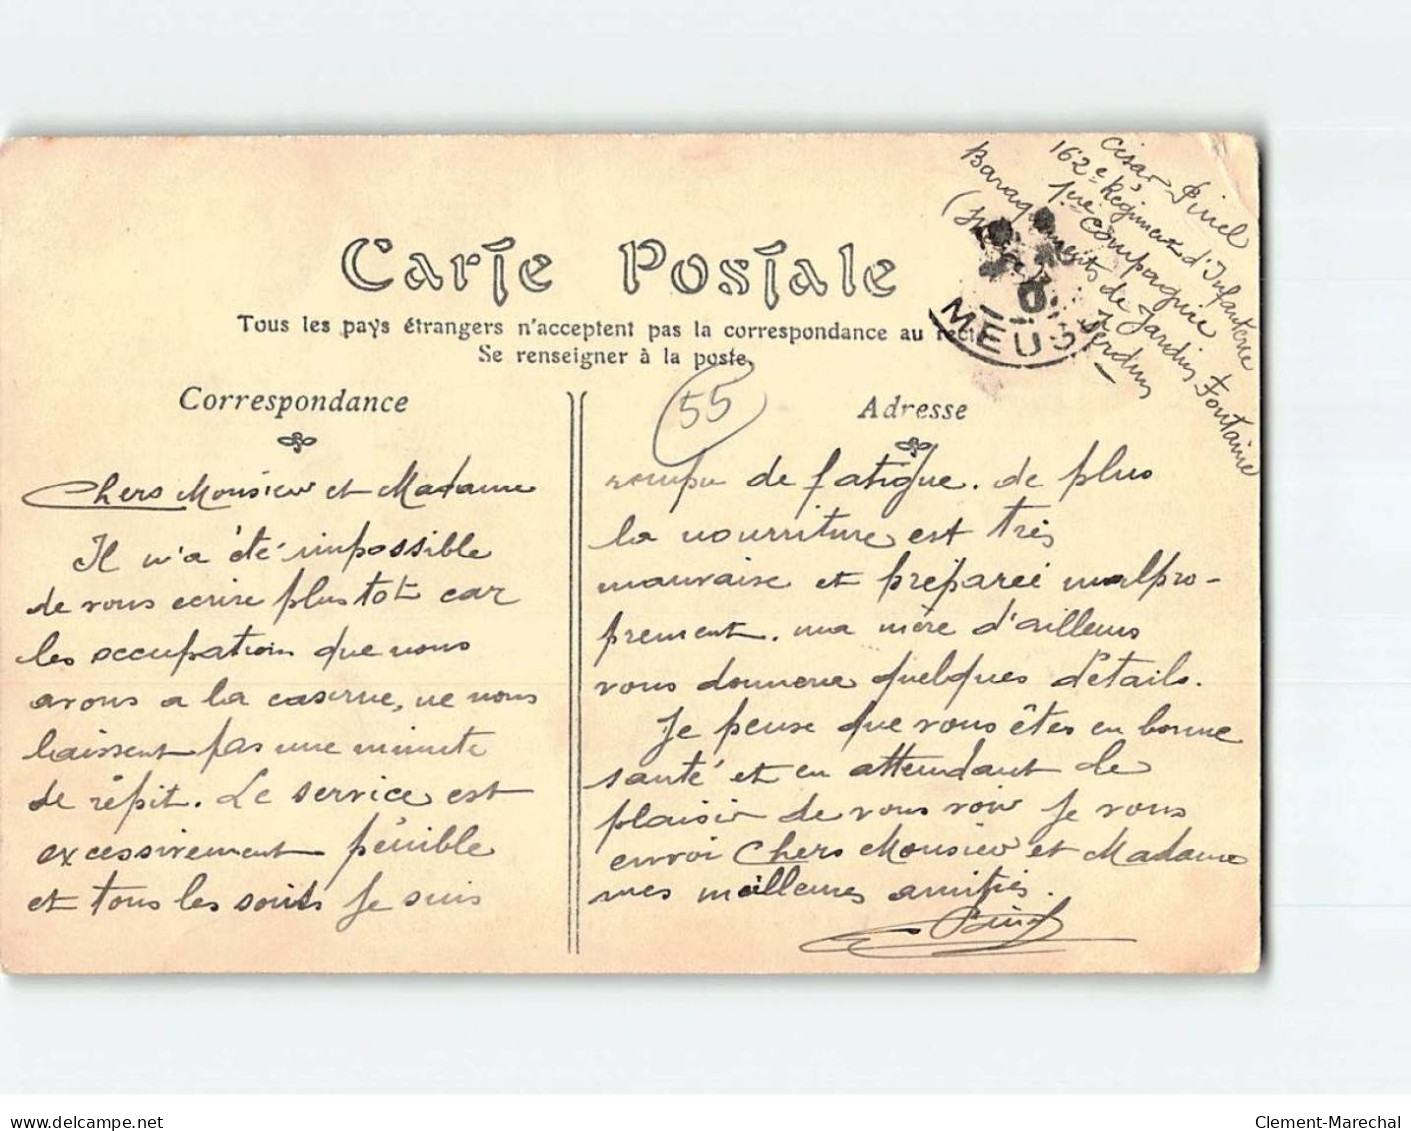 Pinel
162e Régiment d'Infanterie
1re Compagnie
Baraquements de Jardin Fontaine
Verdun
Carte Postale
Tous les pays étrangers n'acceptent pas la correspondance au recto
Se renseigner à la poste
MEUSE
Correspondance
55
Adresse
Chers Monsieur et Madame
Il m'a été impossible
de vous ecrire plus tot car
les occupation que nous
avons a la caserne, ne nous
laissent pas une minute
de répit. Le service est
excessivement pénible
et tous les soirs je suis
rompu de fatigue. de plus
la nourriture est très
mauvaise et préparée malpro-
prement. ma mère d'ailleurs
vous donnera quelques détails.
Je pense que vous êtes en bonne
santé et en attendant de
plaisir de vous voir je vous
envoi Chers Monsieur et Madame
mes meilleures amitiés.
Pinel
www.delcampe.net
Clement-Marechal